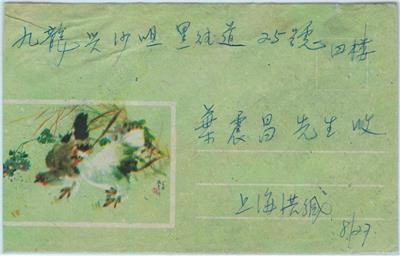 九龍尖沙咀 道 25號 四楼
葉震昌 先生 收
上海洪缄
8/27